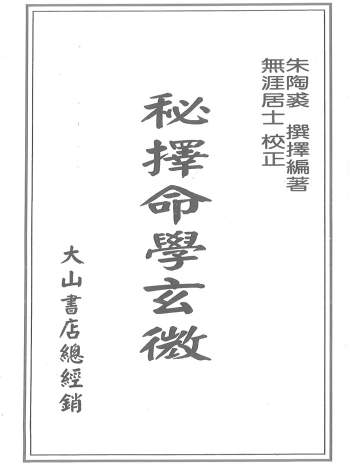 朱陶裘　撰擇編著
無涯居士 校正
秘擇命學玄微
大山書店總經銷